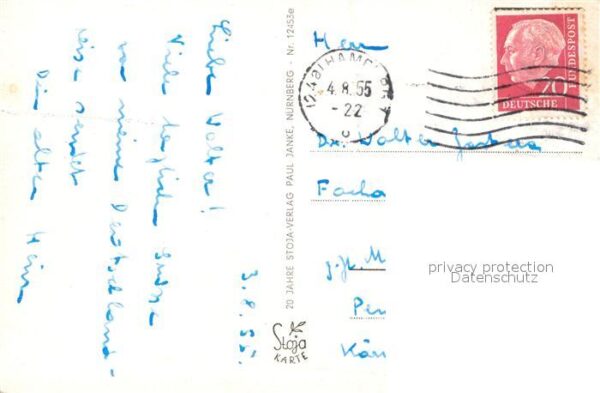 3.8.55.
Lieber Walter!
Viele herzliche Grüsse
von meiner Deutschland-
reise sendet
Dein alter Heinz
20 JAHRE STOJA-VERLAG PAUL JANKE, NÜRNBERG - Nr. 12453e
Stoja
KARTE
Herrn
Dr. Walter
Facha
z.Zt. M
Kär
4.8.55
-22
70
DEUTSCHE
BUNDESPOST
privacy protection
Datenschutz